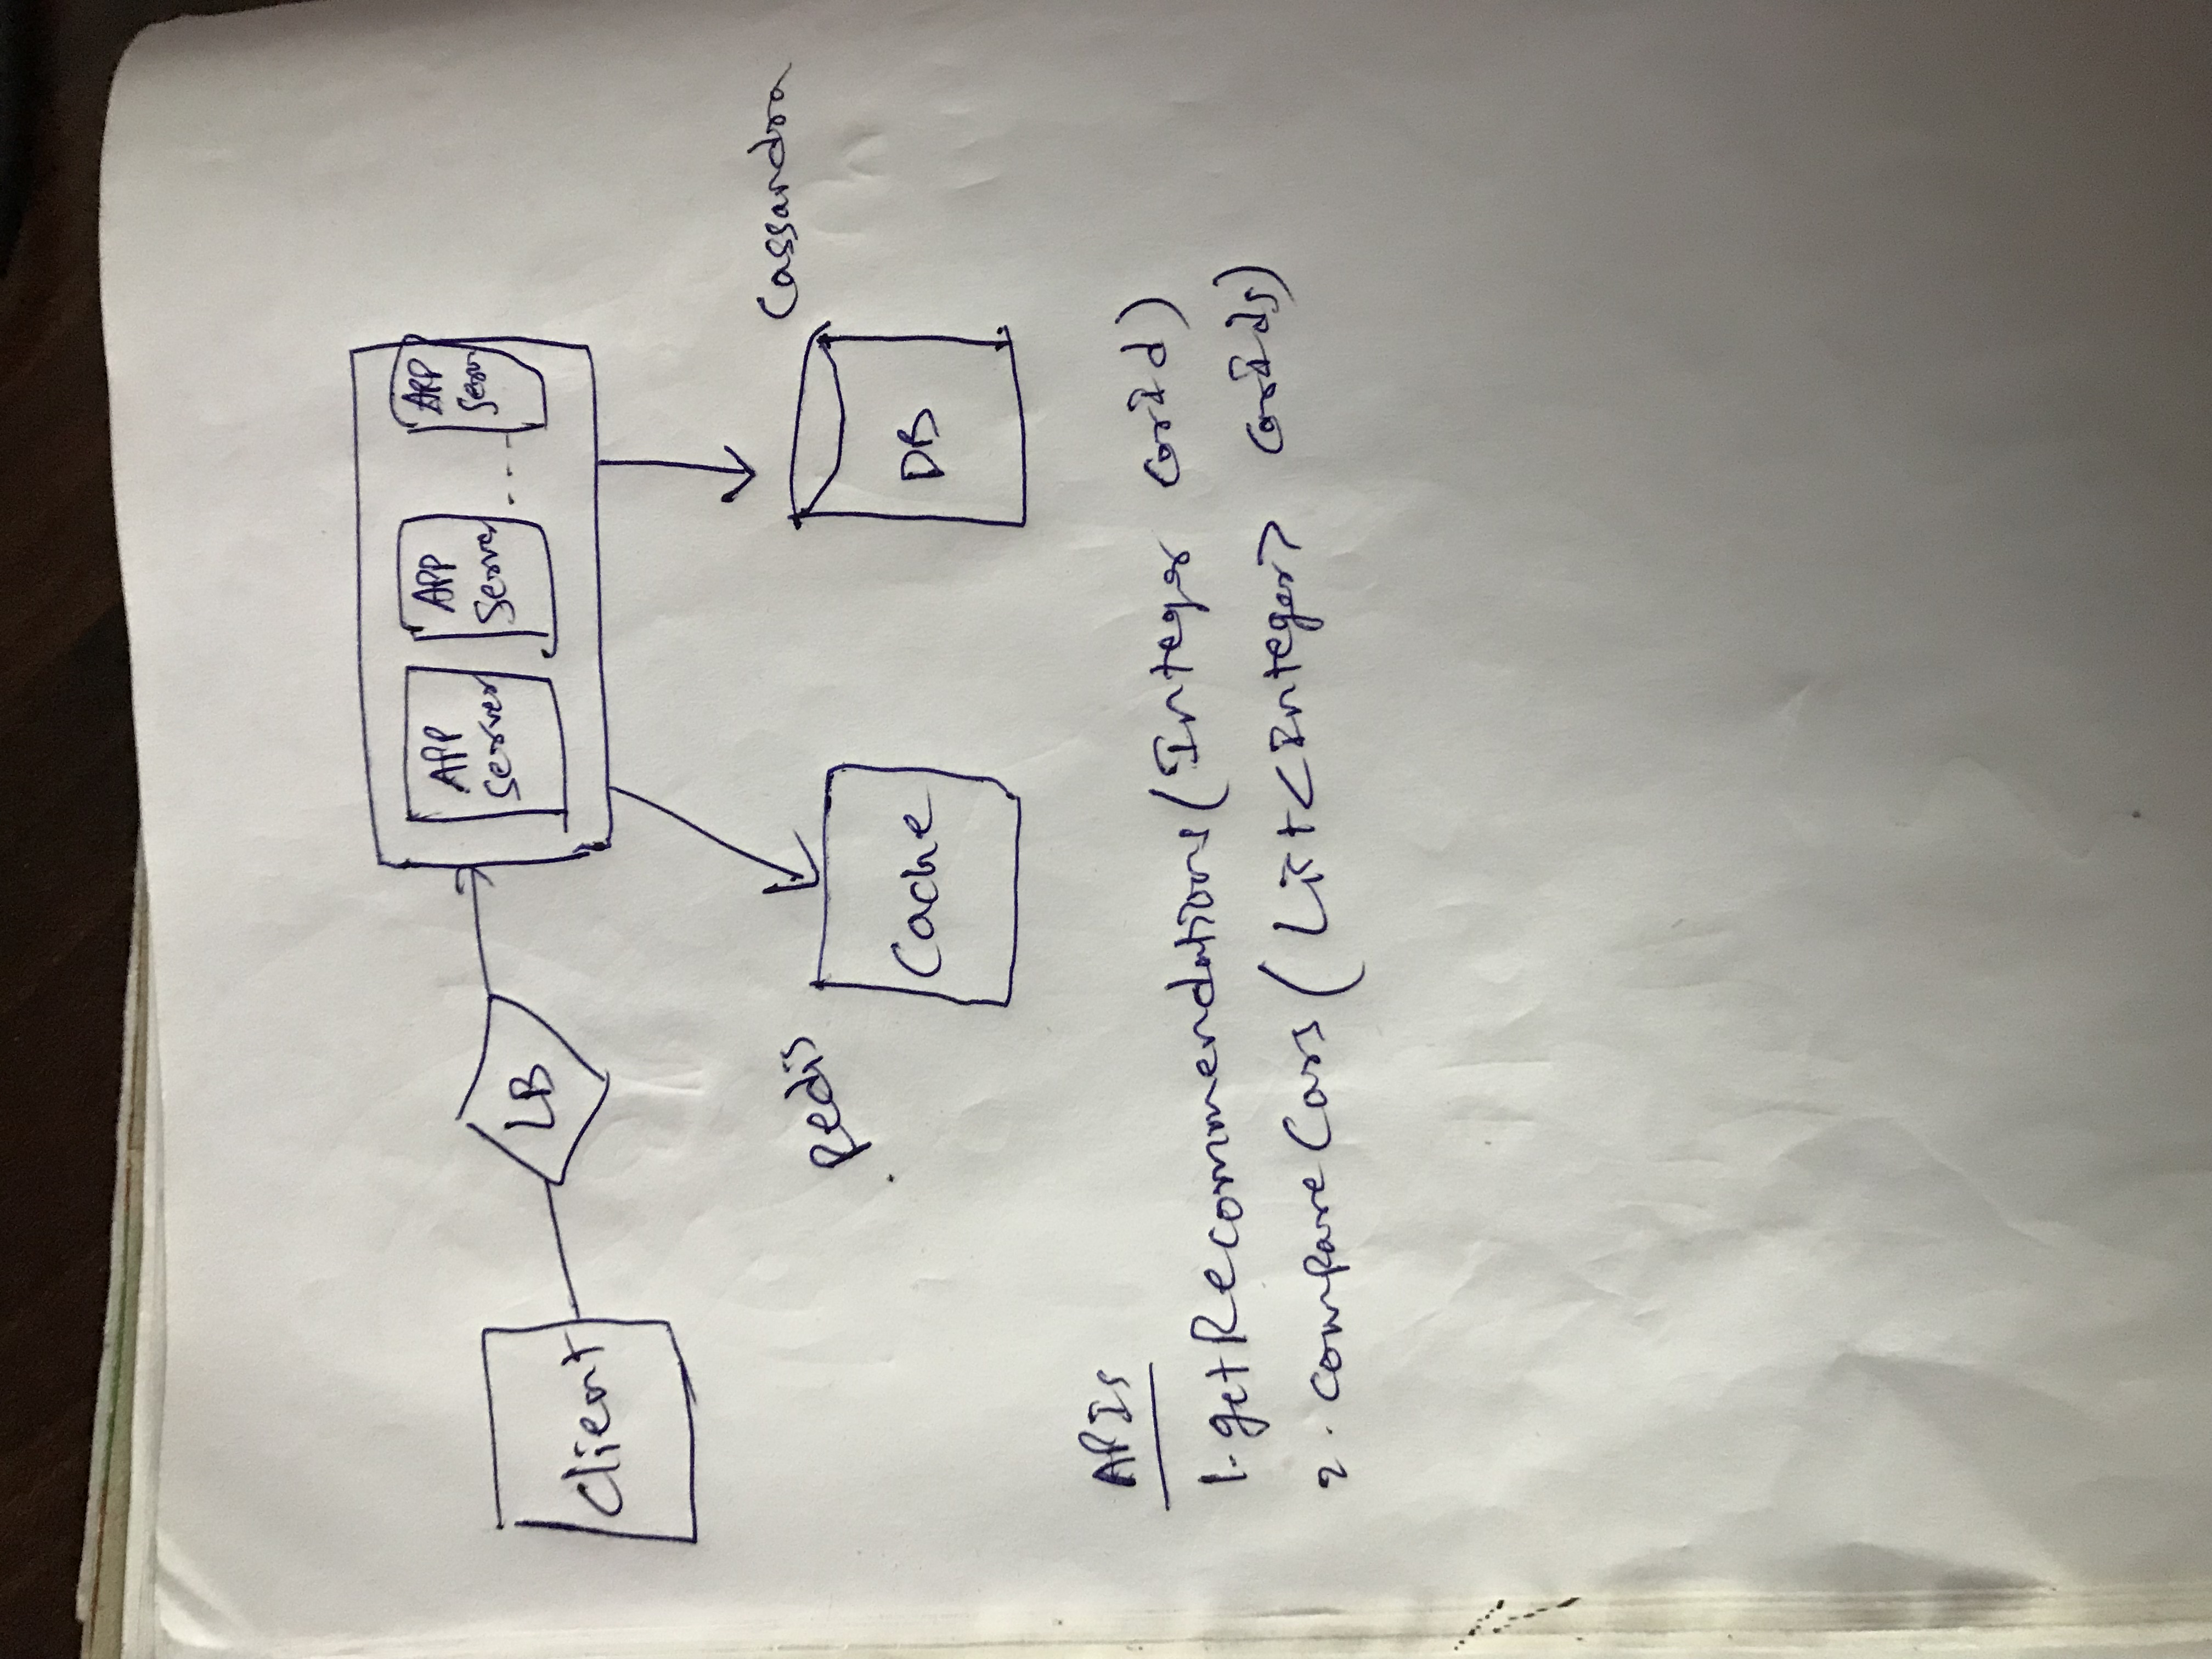 APP Server
APP Server
APP Serv
LB
Client
Redis
Cassandra
Cache
DB
APIs
1. getRecommendations(Integer carId)
2. compareCars(List<Integer> carIds)